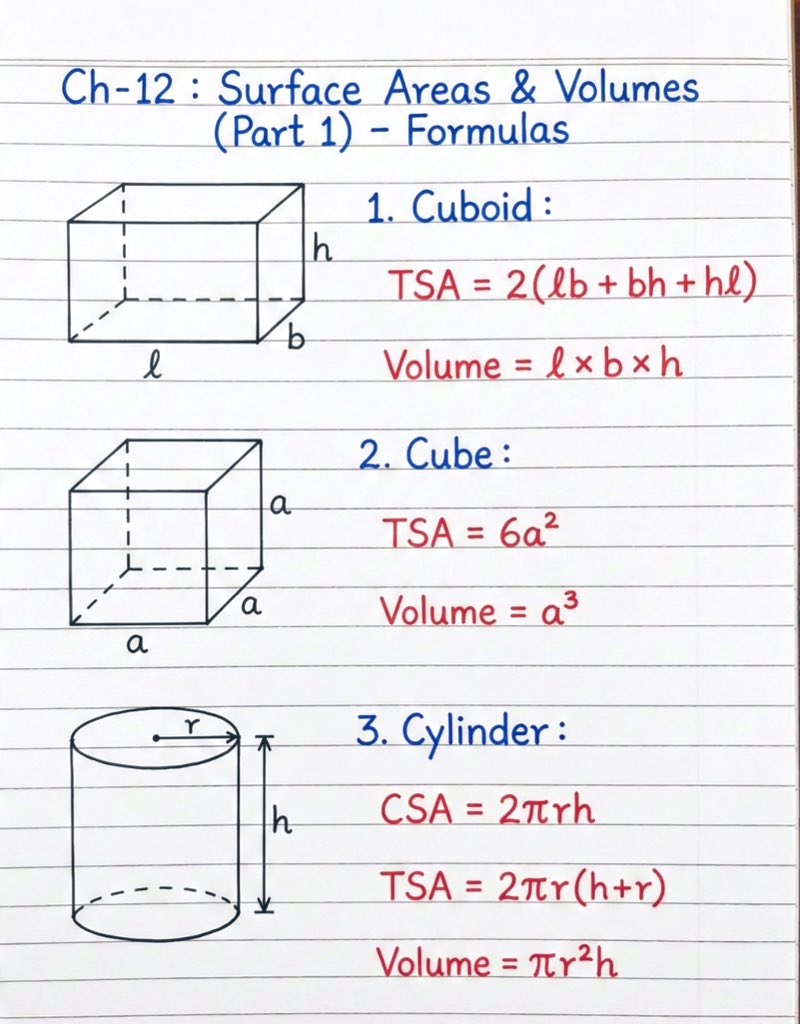 Ch-12 : Surface Areas & Volumes
(Part 1) – Formulas
1. Cuboid :
h
TSA = 2(ℓb + bh + hℓ)
b
ℓ
Volume = ℓ × b × h
2. Cube :
a
TSA = 6a²
a
Volume = a³
a
r
3. Cylinder :
CSA = 2πrh
h
TSA = 2πr(h+r)
Volume = πr²h